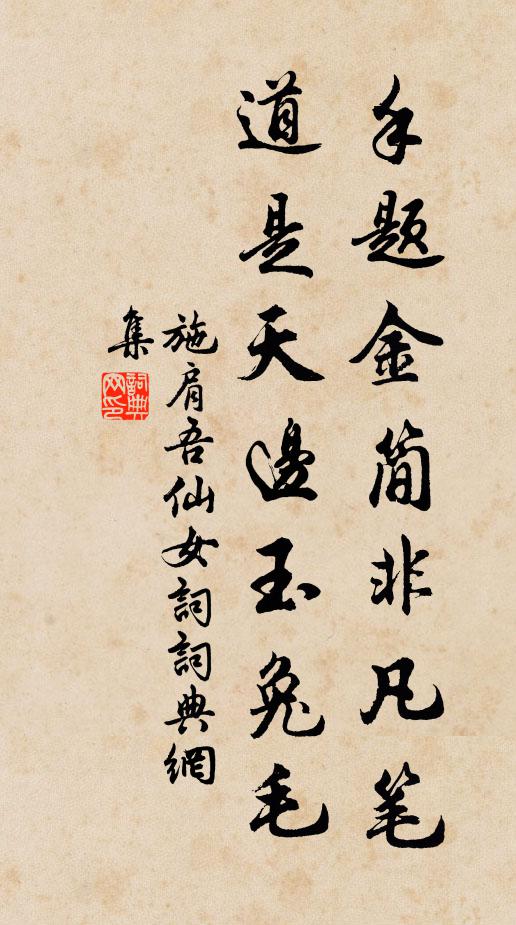 手题金简非凡笔
道是天邊玉兔毛
施肩吾仙女詞詞典網
集
詞典
网印